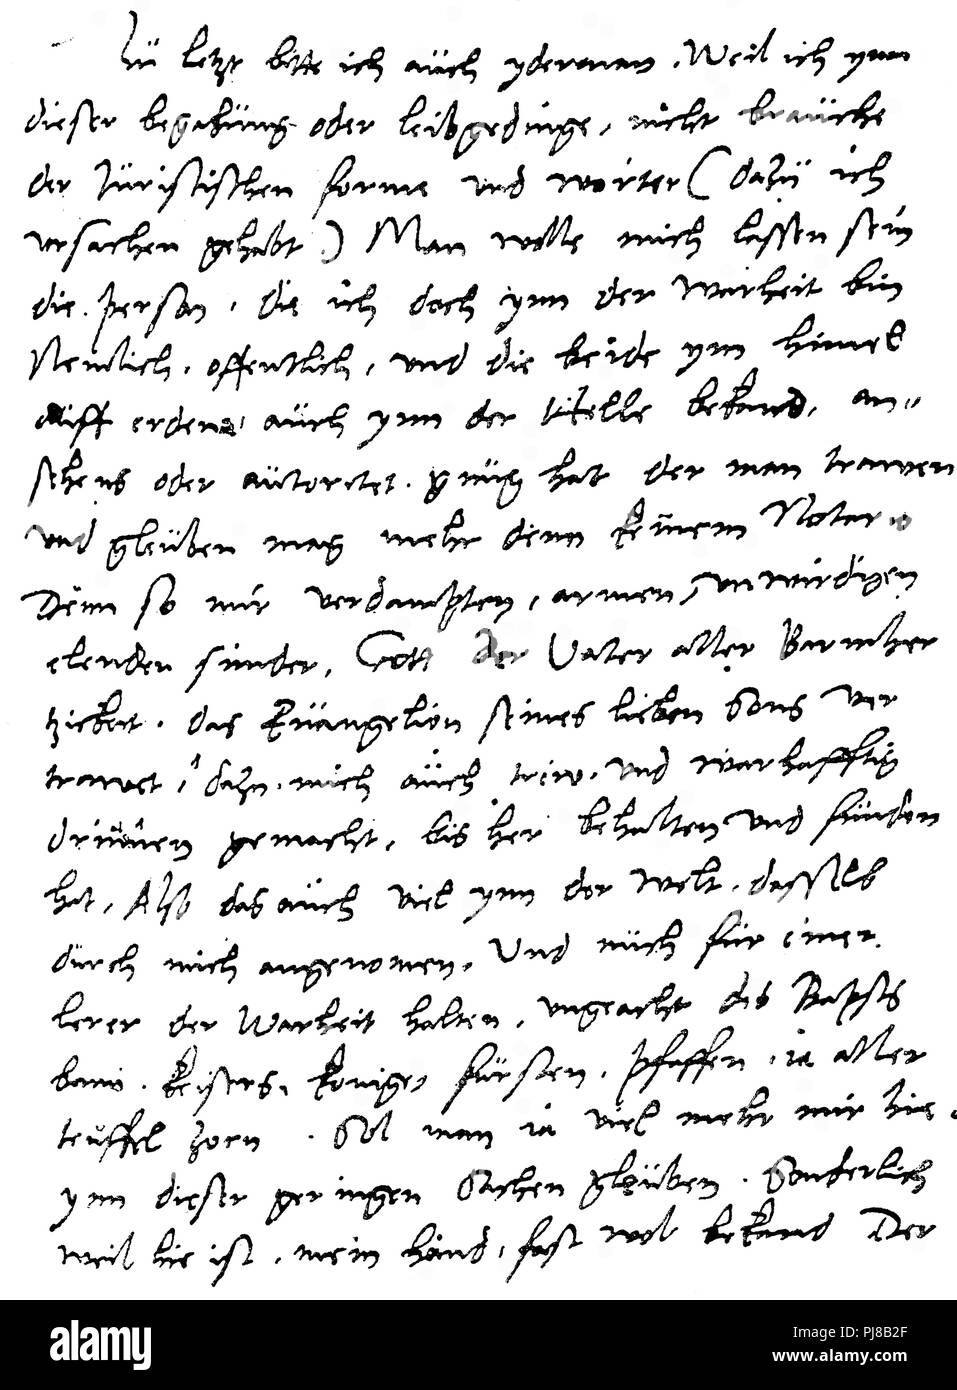 Zu letzt bitte ich auch yderman, Weil ich ynn
dieser begabung oder leibgedinge, nicht brauche
der Juristischen forme und worter (dazu ich
ursachen gehabt) Man wolle mich lassen sein
die person, die ich doch ynn der warheit bin
Nemlich, offentlich, und die beide ym himel
auff erden, auch ynn der Helle bekand, an,,
sehens oder autoritet gnug hat der man trawen
und gleuben mag mehr denn keinem Notario
Denn so mir verdampten, armen, unwirdigen
elenden sunder, Gott der Vater aller Barmher
tzickeit, das Euangelion seines lieben Sons ver
trawet, dazu mich auch trew und warhafftig
drinnen gemacht, bis her behalten und funden
hat, Also das auch viel ynn der welt, dasselb
durch mich angenomen, Und mich fur einen
lerer der Warheit halten, ungeacht des Bapsts
bann, keisers, konige, fursten, pfaffen, ia aller
teuffel zorn, Sol man ia viel mehr mir hie
ynn dieser geringen Sachen gleuben, Sonderlich
weil hie ist, mein hand, fast wol bekand Der
alamy
Image ID: PJ8B2F
www.alamy.com